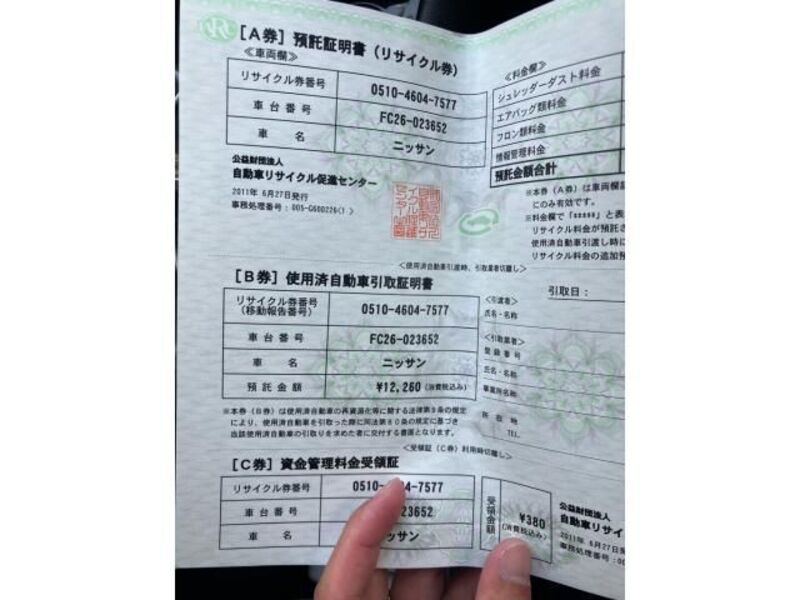 [A券] 預託証明書 (リサイクル券)
≪車両欄≫
リサイクル券番号 0510-4604-7577
車台番号 FC26-023652
車名 ニッサン
公益財団法人
自動車リサイクル促進センター
2011年 6月27日発行
事務処理番号:005-G600226(1)
≪料金欄≫
シュレッダーダスト料金
エアバッグ類料金
フロン類料金
情報管理料金
預託金額合計
※本券(A券)は車両欄
にのみ有効です。
※料金欄で「*****」と表
リサイクル料金が預託さ
使用済自動車引渡し時に
リサイクル料金の追加預
<使用済自動車引渡時、引取業者切離し>
[B券] 使用済自動車引取証明書
リサイクル券番号
(移動報告番号) 0510-4604-7577
車台番号 FC26-023652
車名 ニッサン
預託金額 ¥12,260(消費税込み)
※本券(B券)は使用済自動車の再資源化等に関する法律第9条の規定
により、使用済自動車を引取った際に同法第80条の規定に基づき
当該使用済自動車の引取りを求めた者に交付する書面となります。
引取日:
<引渡者>
氏名・名称
<引取業者>
登録番号
氏名・名称
事業所名称
所在地
TEL.
<受領証(C券)利用時切離し>
[C券] 資金管理料金受領証
リサイクル券番号 0510- 04-7577
車台番号 23652
車名 ッサン
受領金額 ¥380
(消費税込み)
公益財団法人
自動車リサイ
2011年 6月27日発
事務処理番号:00